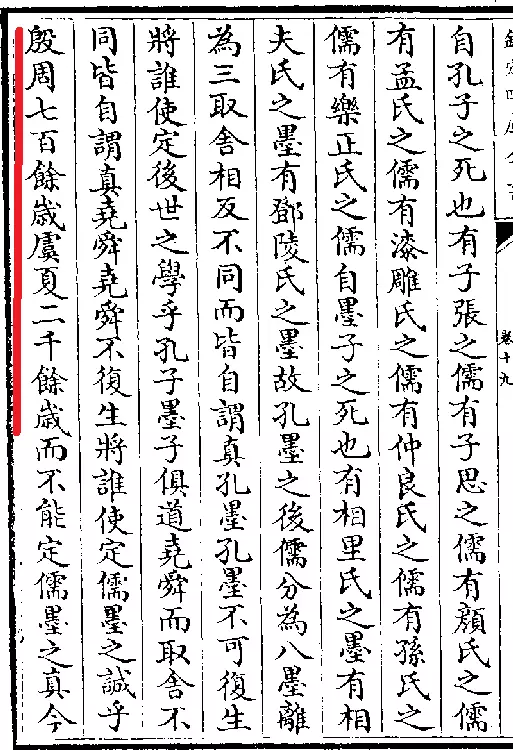 卷十九
自孔子之死也有子張之儒有子思之儒有顔氏之儒
有孟氏之儒有漆雕氏之儒有仲良氏之儒有孫氏之
儒有樂正氏之儒自墨子之死也有相里氏之墨有相
夫氏之墨有鄧陵氏之墨故孔墨之後儒分為八墨離
為三取舍相反不同而皆自謂真孔墨孔墨不可復生
將誰使定後世之學乎孔子墨子俱道堯舜而取舍不
同皆自謂真堯舜堯舜不復生將誰使定儒墨之誠乎
殷周七百餘歲虞夏二千餘歲而不能定儒墨之真今